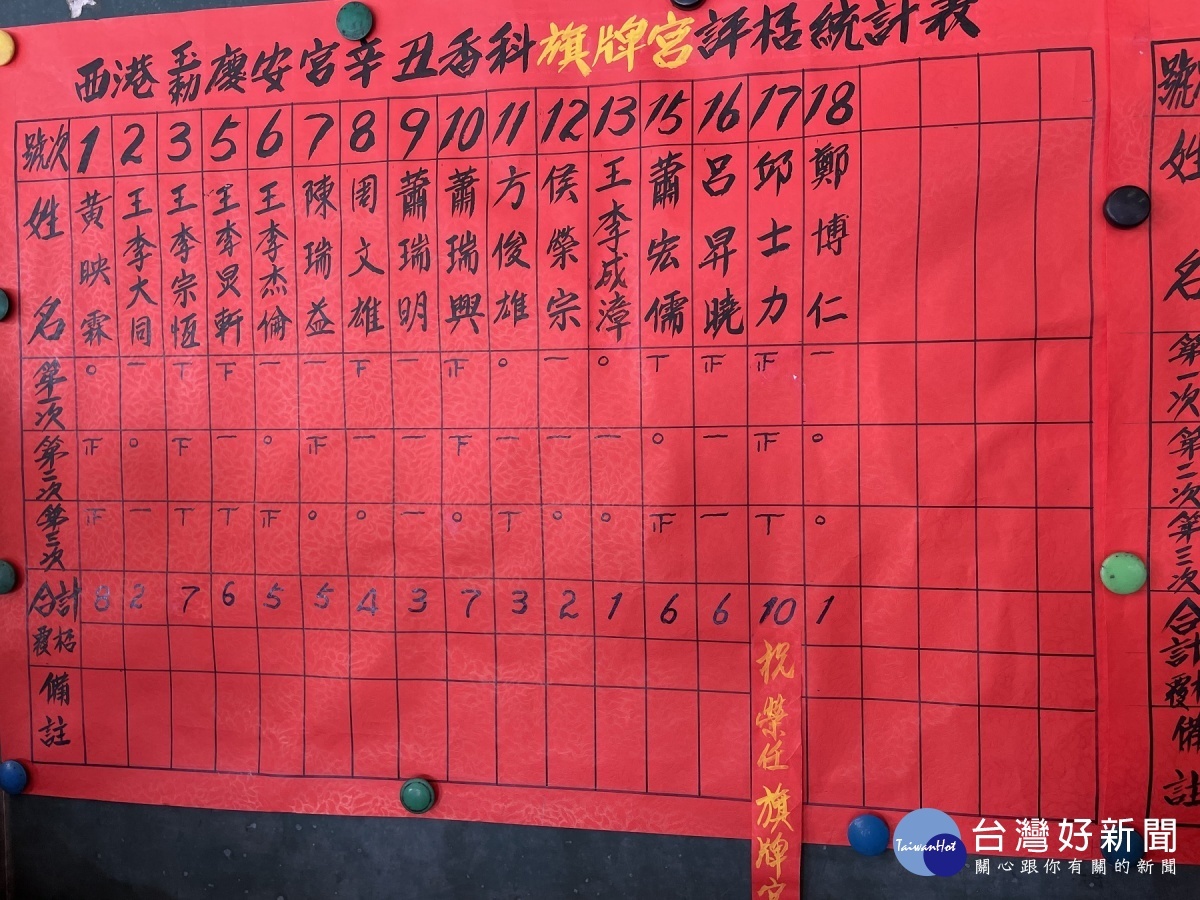 西港玉勅慶安宮辛丑香科旗牌官評栝統計表
號次 1 2 3 5 6 7 8 9 10 11 12 13 15 16 17 18
姓名 黃映霖 王李大同 王李宗恆 王李炅軒 王李杰倫 陳瑞益 周文雄 蕭瑞明 蕭瑞興 方俊雄 侯榮宗 王李成漳 蕭宏儒 呂昇曉 邱士力 鄭博仁
第一次 ○ 一 丅 下 一 一 下 一 正 ○ 一 ○ 丅 正 正 一
第二次 正 ○ 下 一 ○ 正 一 一 下 一 一 一 ○ 一 正 ○
第三次 正 一 丅 丅 正 ○ ○ 一 ○ 丅 ○ ○ 正 一 丅 ○
合計 8 2 7 6 5 5 4 3 7 3 2 1 6 6 10 1
覆栝
備註
祝榮任旗牌官
號
姓名
第一次
第二次
第三次
合計
覆栝
備註
TaiwanHot
台灣好新聞
關心跟你有關的新聞